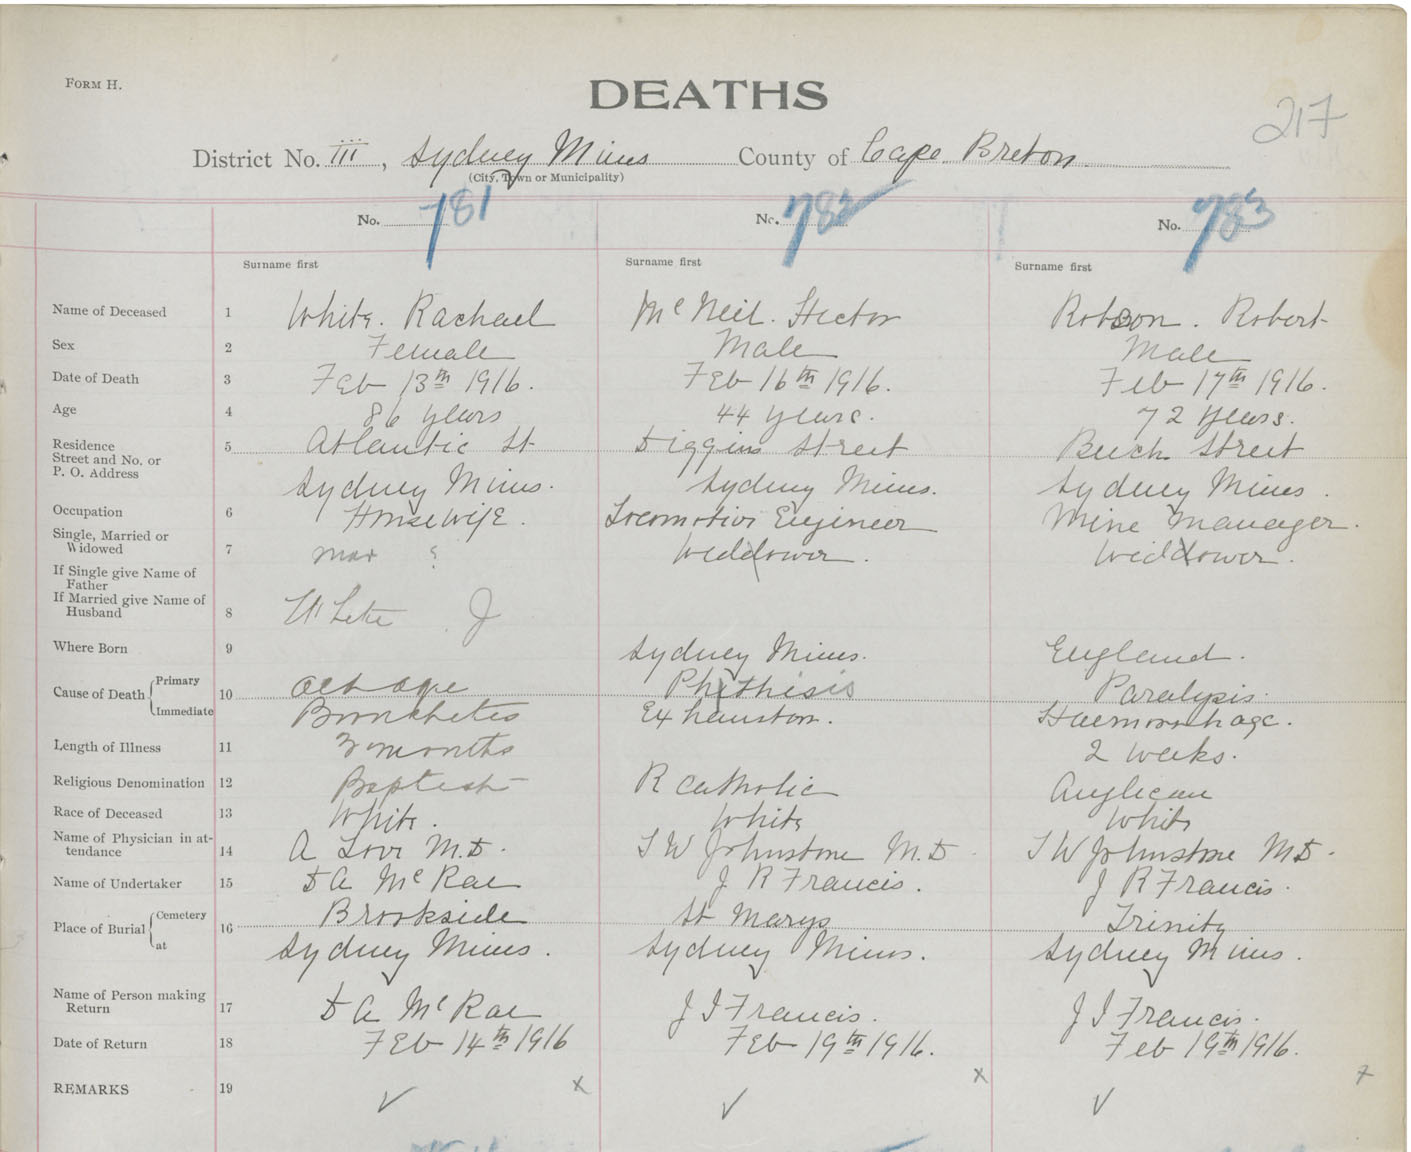 FORM H.
DEATHS
217
District No. III, Sydney Mines County of Cape Breton
(City, Town or Municipality)
No. 781 No. 782 No. 783
Surname first Surname first Surname first
Name of Deceased 1 White. Rachael McNeil. Hector Robson. Robert
Sex 2 Female Male Male
Date of Death 3 Feb 13th 1916. Feb 16th 1916. Feb 17th 1916.
Age 4 86 years 44 years. 72 years.
Residence 5 Atlantic St Diggins Street Beech Street
Street and No. or
P. O. Address Sydney Mines. Sydney Mines. Sydney Mines.
Occupation 6 Housewife. Locomotive Engineer Mine Manager.
Single, Married or
Widowed 7 mar ? Widdower. Widdower.
If Single give Name of
Father
If Married give Name of
Husband 8 White J
Where Born 9 Sydney Mines. England.
Cause of Death Primary 10 old age Phithisis Paralysis.
Immediate Bronchetes Exhauston. Haemorrhage.
Length of Illness 11 3 months 2 weeks.
Religious Denomination 12 Baptist R Catholic Anglican
Race of Deceased 13 White. White White
Name of Physician in at-
tendance 14 A Love M.D. T W Johnstone M.D T W Johnstone M D.
Name of Undertaker 15 D A McRae J R Francis. J R Francis.
Place of Burial Cemetery 16 Brookside St Marys Trinity
at Sydney Mines. Sydney Mines. Sydney Mines.
Name of Person making
Return 17 D A McRae J J Francis. J J Francis.
Date of Return 18 Feb 14th 1916 Feb 19th 1916. Feb 19th 1916.
REMARKS 19 ✓ x ✓ x ✓ x